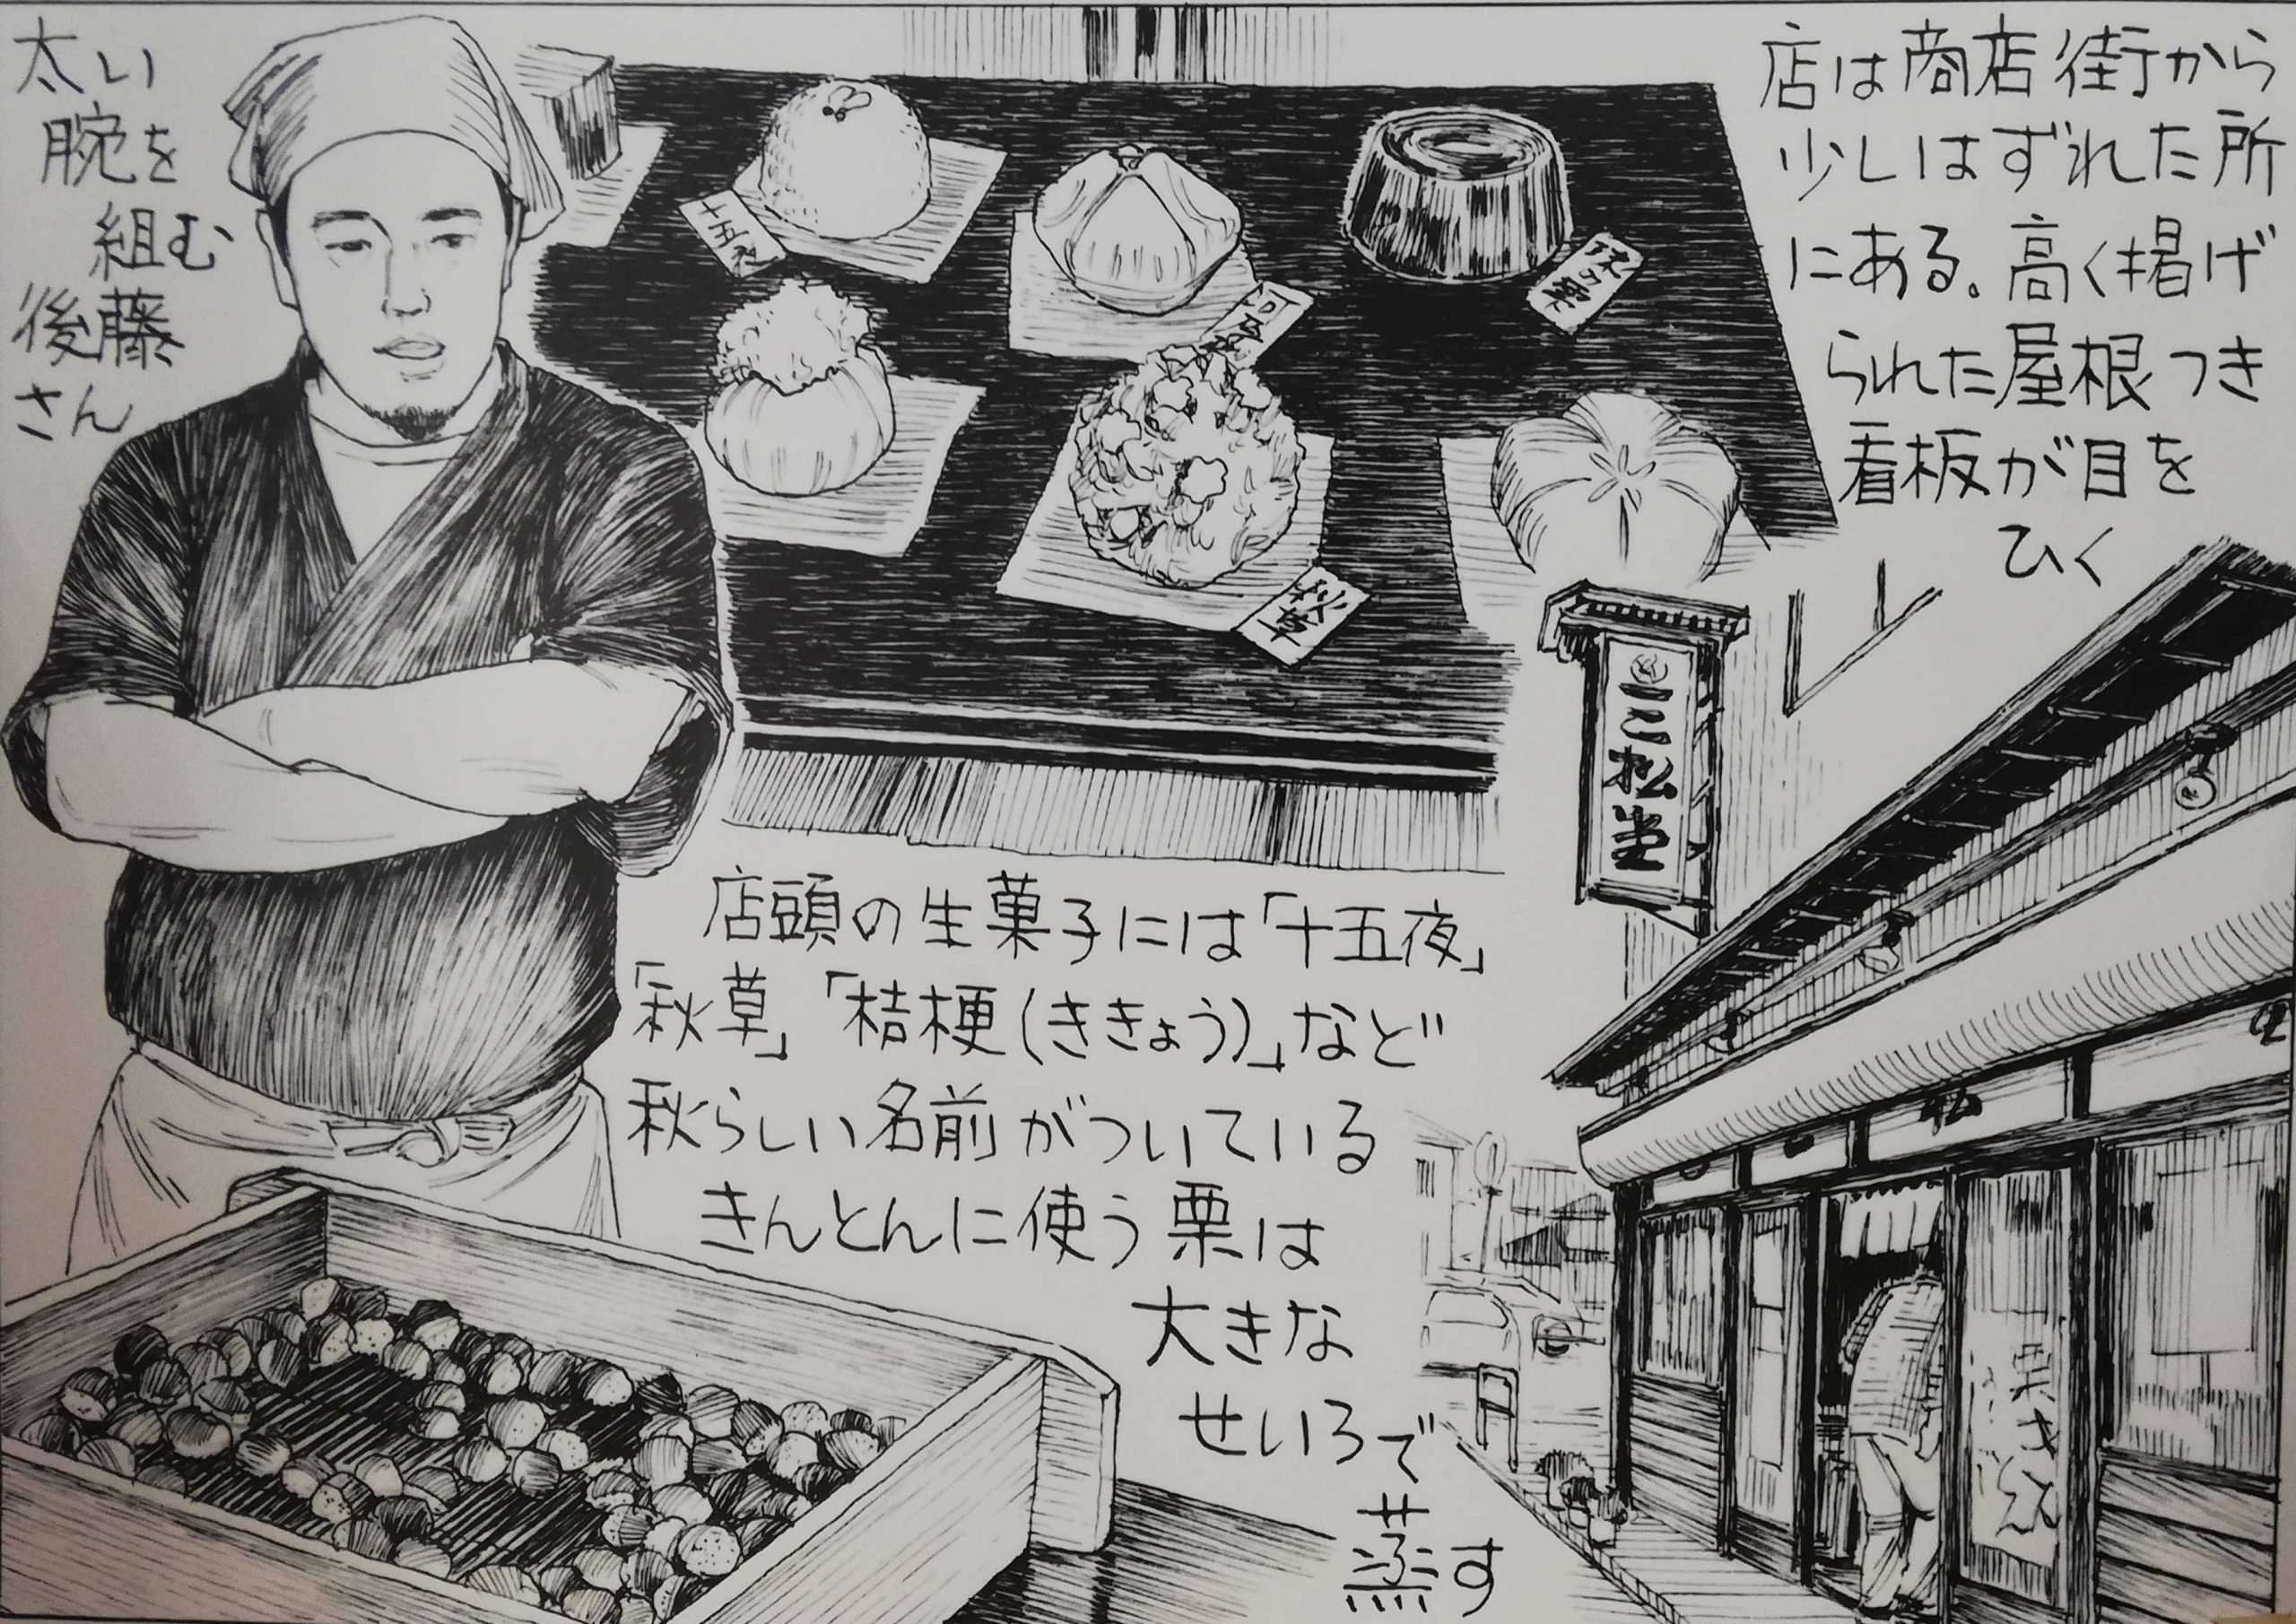 太い
腕を
組む
後藤
さん
店は商店街から
少しはずれた所
にある。高く掲げ
られた屋根つき
看板が目を
ひく
十五夜
秋草
三松堂
店頭の生菓子には「十五夜」
「秋草」「桔梗(ききょう)」など
秋らしい名前がついている
きんとんに使う栗は
大きな
せいろで
蒸す